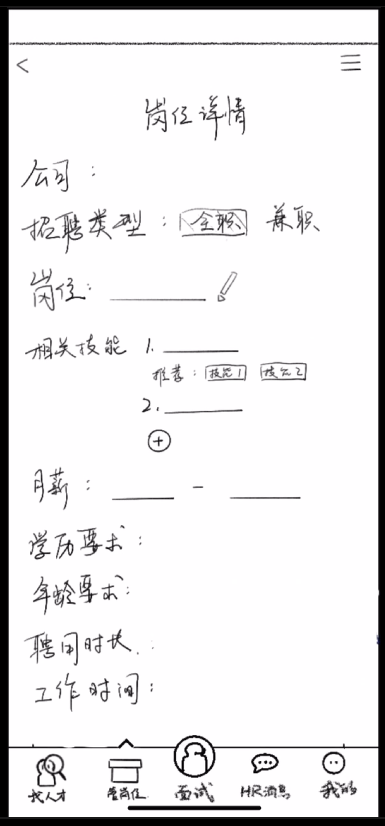 岗位详情
公司：
招聘类型： 全职 兼职
岗位：
相关技能 1.
推荐： 技能1 技能2
2.
月薪： -
学历要求：
年龄要求：
聘用时长：
工作时间：
找人才 管岗位 面试 HR消息 我的